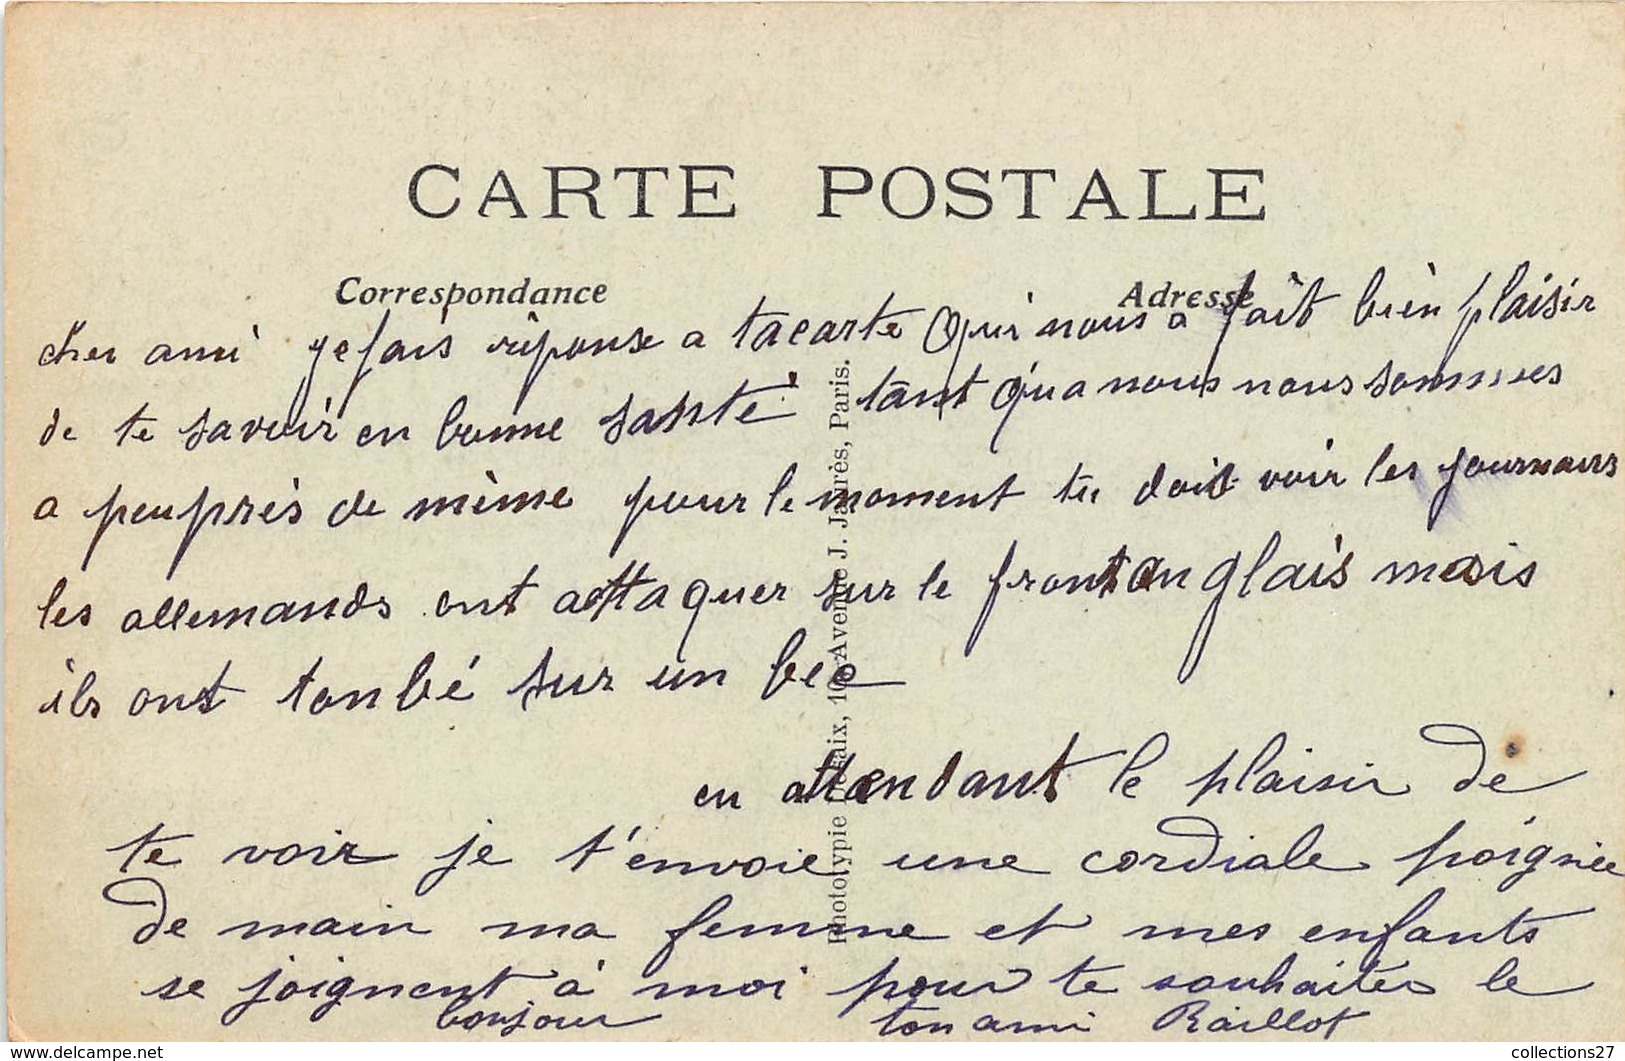 CARTE POSTALE
Correspondance
Adresse
cher ami je fais réponse a ta carte qui nous a fait bien plaisir
de te savoir en bonne sante tant qu'a nous nous sommes
a peu près de même pour le moment tu doit voir les journaux
les allemands ont attaquer sur le front anglais mais
ils ont tonbé sur un bec
en attendant le plaisir de
te voir je t'envoie une cordiale poignée
de main ma femme et mes enfants
se joignent à moi pour te souhaiter le
bonjour ton ami Raillot
Phototypie Desaix, Avenue J. Jaurès, Paris.
www.delcampe.net
collections27